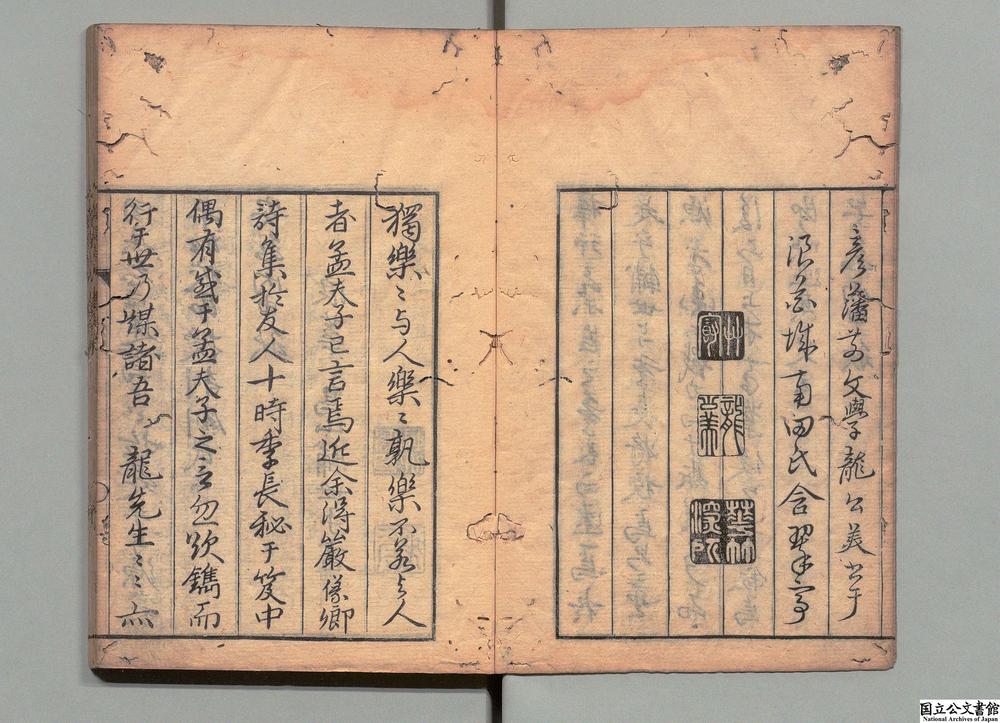 彦藩前文學龍公美书于
浪華城南田氏含翠亭
龍公美
獨樂〻与人樂〻孰樂不若与人
者孟夫子已言焉近余得嚴儀卿
詩集於友人十時季長秘于笈中
偶有感于孟夫子之言忽欲鐫而
行于世乃媒諸吾 龍先生〻〻亦
国立公文書館
National Archives of Japan